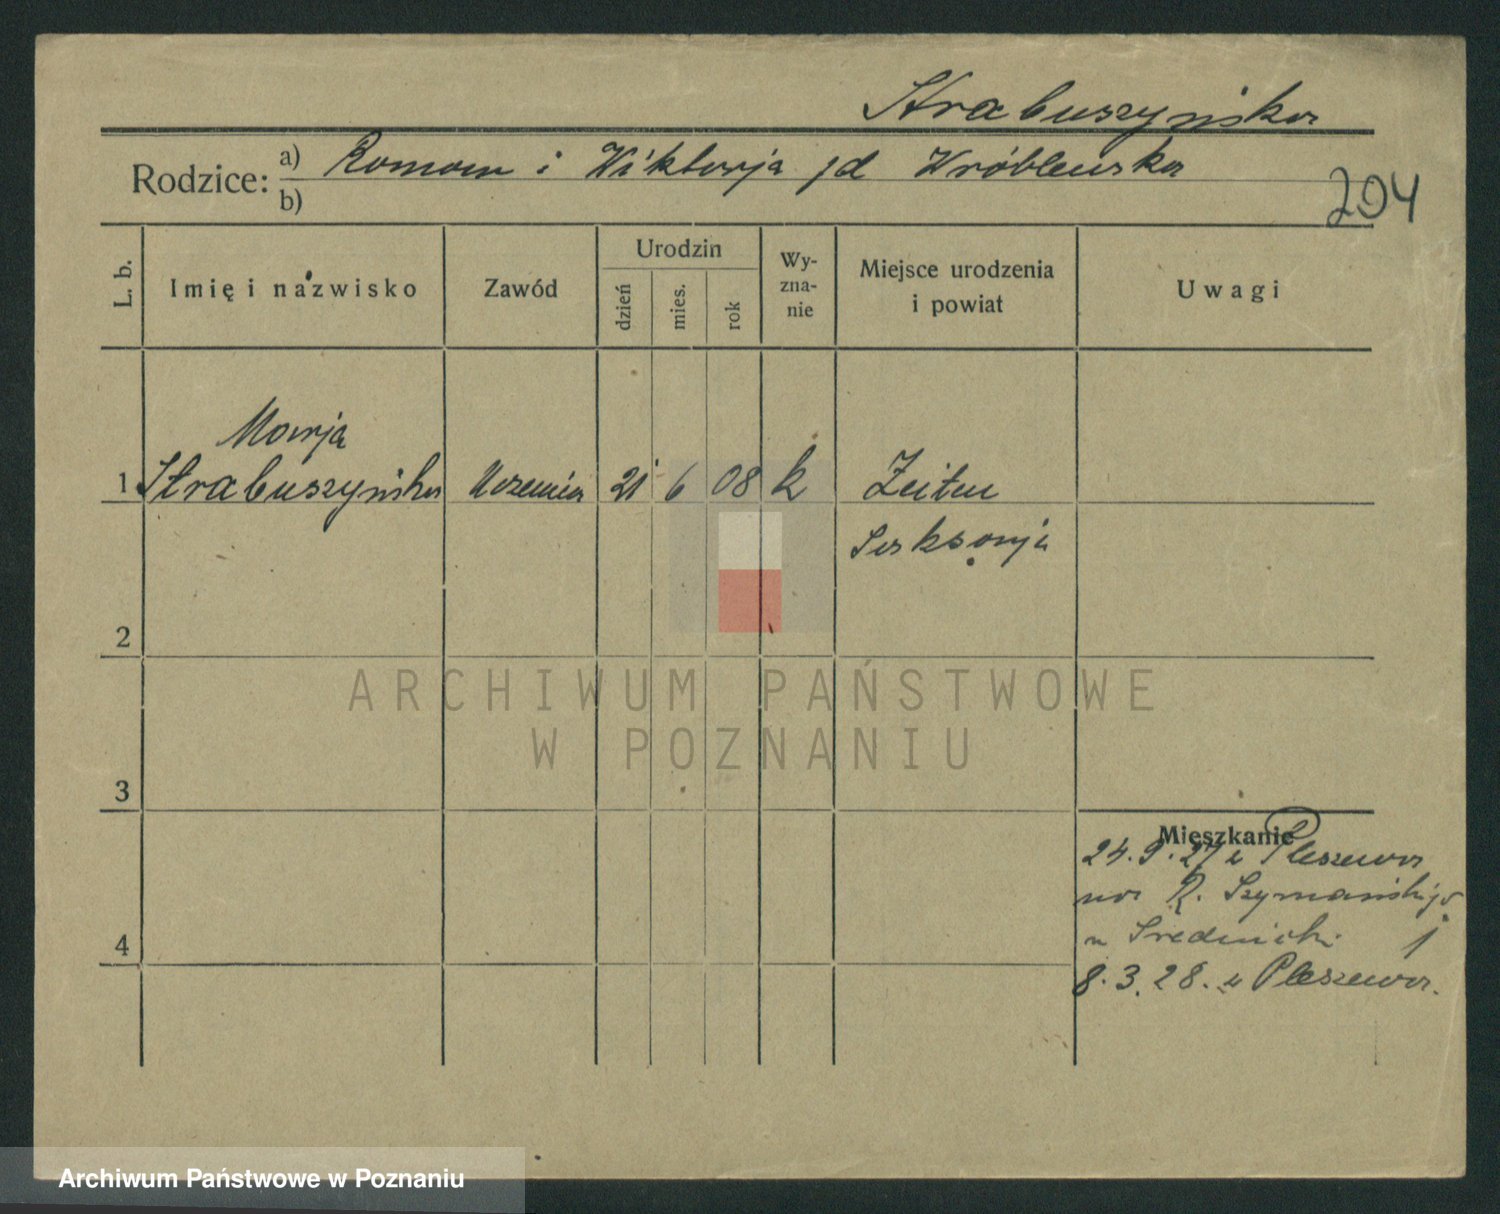 Strabuszyńska
Rodzice: a) Roman i Wiktorja jd Wróblewska
b)
204
L. b.
Imię i nazwisko
Zawód
Urodzin
dzień
mies.
rok
Wy-
zna-
nie
Miejsce urodzenia
i powiat
Uwagi
Marja
1 Strabuszyńska Uczenica 21 6 08 k Zeiten
Saksonja
2
ARCHIWUM PAŃSTWOWE
W POZNANIU
3
Mieszkanie
24.9.27 z Pleszewa
na R. Szymańskiego
4
8.3.28. z Pleszewa.
Archiwum Państwowe w Poznaniu